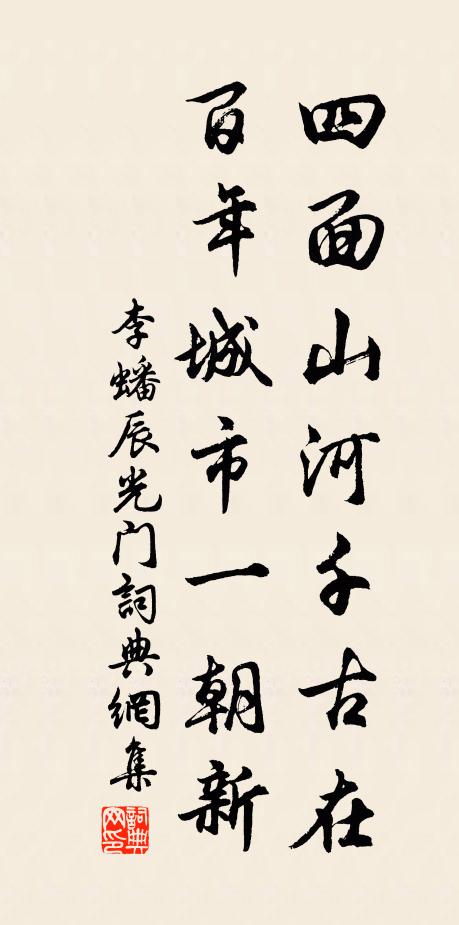 四面山河千古在
百年城市一朝新
李蟠辰光门詞典網集
詞典網印